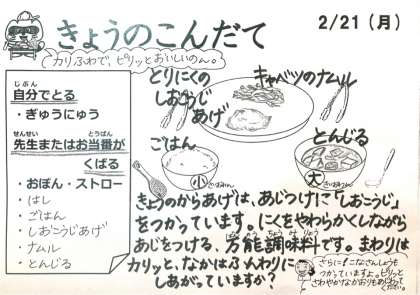 きょうのこんだて
2/21(月)
カリふわで、ピリッとおいしいのん。
自分でとる
じぶん
・ぎゅうにゅう
先生またはお当番が
せんせい とうばん
くばる
・おぼん・ストロー
・はし
・ごはん
・しおこうじあげ
・ナムル
・とんじる
とりにくの
しおこうじ
あげ
キャベツのナムル
ごはん
小
とんじる
大
きょうのからあげは、あじつけに「しおこうじ」
をつかっています。にくをやわらかくしながら
あじをつける、万能調味料です。まわりは
ばんのうちょうみりょう
カリッと、なかはふんわりに
しあがっていますか?
さらに!こなざんしょうも
つかっていますよ。ピリッと
さわやかなかおりもあじわって
ください。